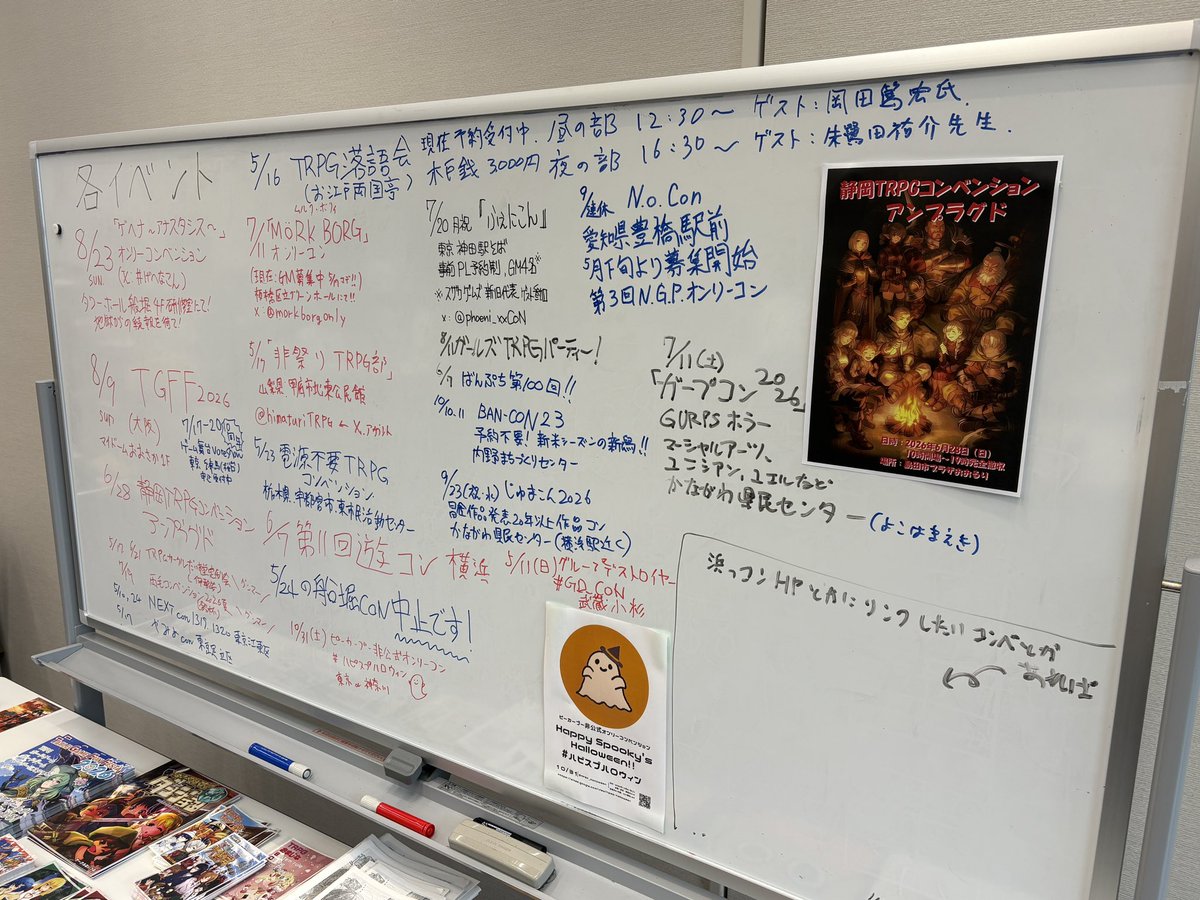 各イベント
5/16 TRPG落語会
(お江戸両国亭)
現在予約受付中. 昼の部 12:30〜 ゲスト:岡田篤宏氏.
木戸銭 3000円 夜の部 16:30〜 ゲスト:朱鷺田祐介先生.
「ゲヘナ〜アナスタシス〜」
8/23 オンリーコンベンション
SUN.
タワーホール船堀 4F研修室にて!
8/9 TGFF2026
SUN (大阪)
マイドームおおさか 1F
7/17-20
6/28 静岡TRPGコンベンション
アンプラグド
5/10, 24 NEXT con 1319, 1320 東京江東区
ムルク・ボリィ
7/11 「MÖRK BORG」
オンリーコン
板橋区立グリーンホールにて!!
X:@morkborgonly
5/17 「非祭りTRPG部」
山梨県甲府市北東公民館
@himaturiTRPG ← X.アカウント
5/23 電源不要TRPG
コンベンション
栃木県宇都宮市東市民活動センター
6/7 第11回遊コン 横浜
5/24の船堀CON中止です!
10/31(土) ピーカーブー非公式オンリーコン
#ハピスプハロウィン
東京 or 神奈川
7/20 月祝 「ふぇにこん」
東京 神田駅そば
事前PL予約制, GM4名*
X:@phoeni_xxCON
8/11 ガールズTRPGパーティー!
ばんぷち第100回!!
10/10.11 BAN-CON23
予約不要! 新米シーズンの新潟!!
内野まちづくりセンター
9/23(祝・水) じゅまこん2026
冒企作品発表20年以上作品コン
かながわ県民センター(横浜駅近く)
5/11(日) グループデストロイヤー
#GD_CON
武蔵小杉
9/連休 N.o.Con
愛知県豊橋駅前
5月下旬より募集開始
第3回N.G.P.オンリーコン
7/11(土)
「ガープコン2026」
GURPSホラー
マーシャルアーツ、
ユニシアン、ユエルなど
かながわ県民センター(よこはまえき)
静岡TRPGコンベンション
アンプラグド
日時:2026年6月28日(日)
10時開場〜19時完全撤収
場所:島田市プラザおおるり
浜っコンHPとかにリンクしたいコンベとか
あれば
ピーカーブー非公式オンリーコンベンション
Happy Spooky's
Halloween!!
#ハピスプハロウィン